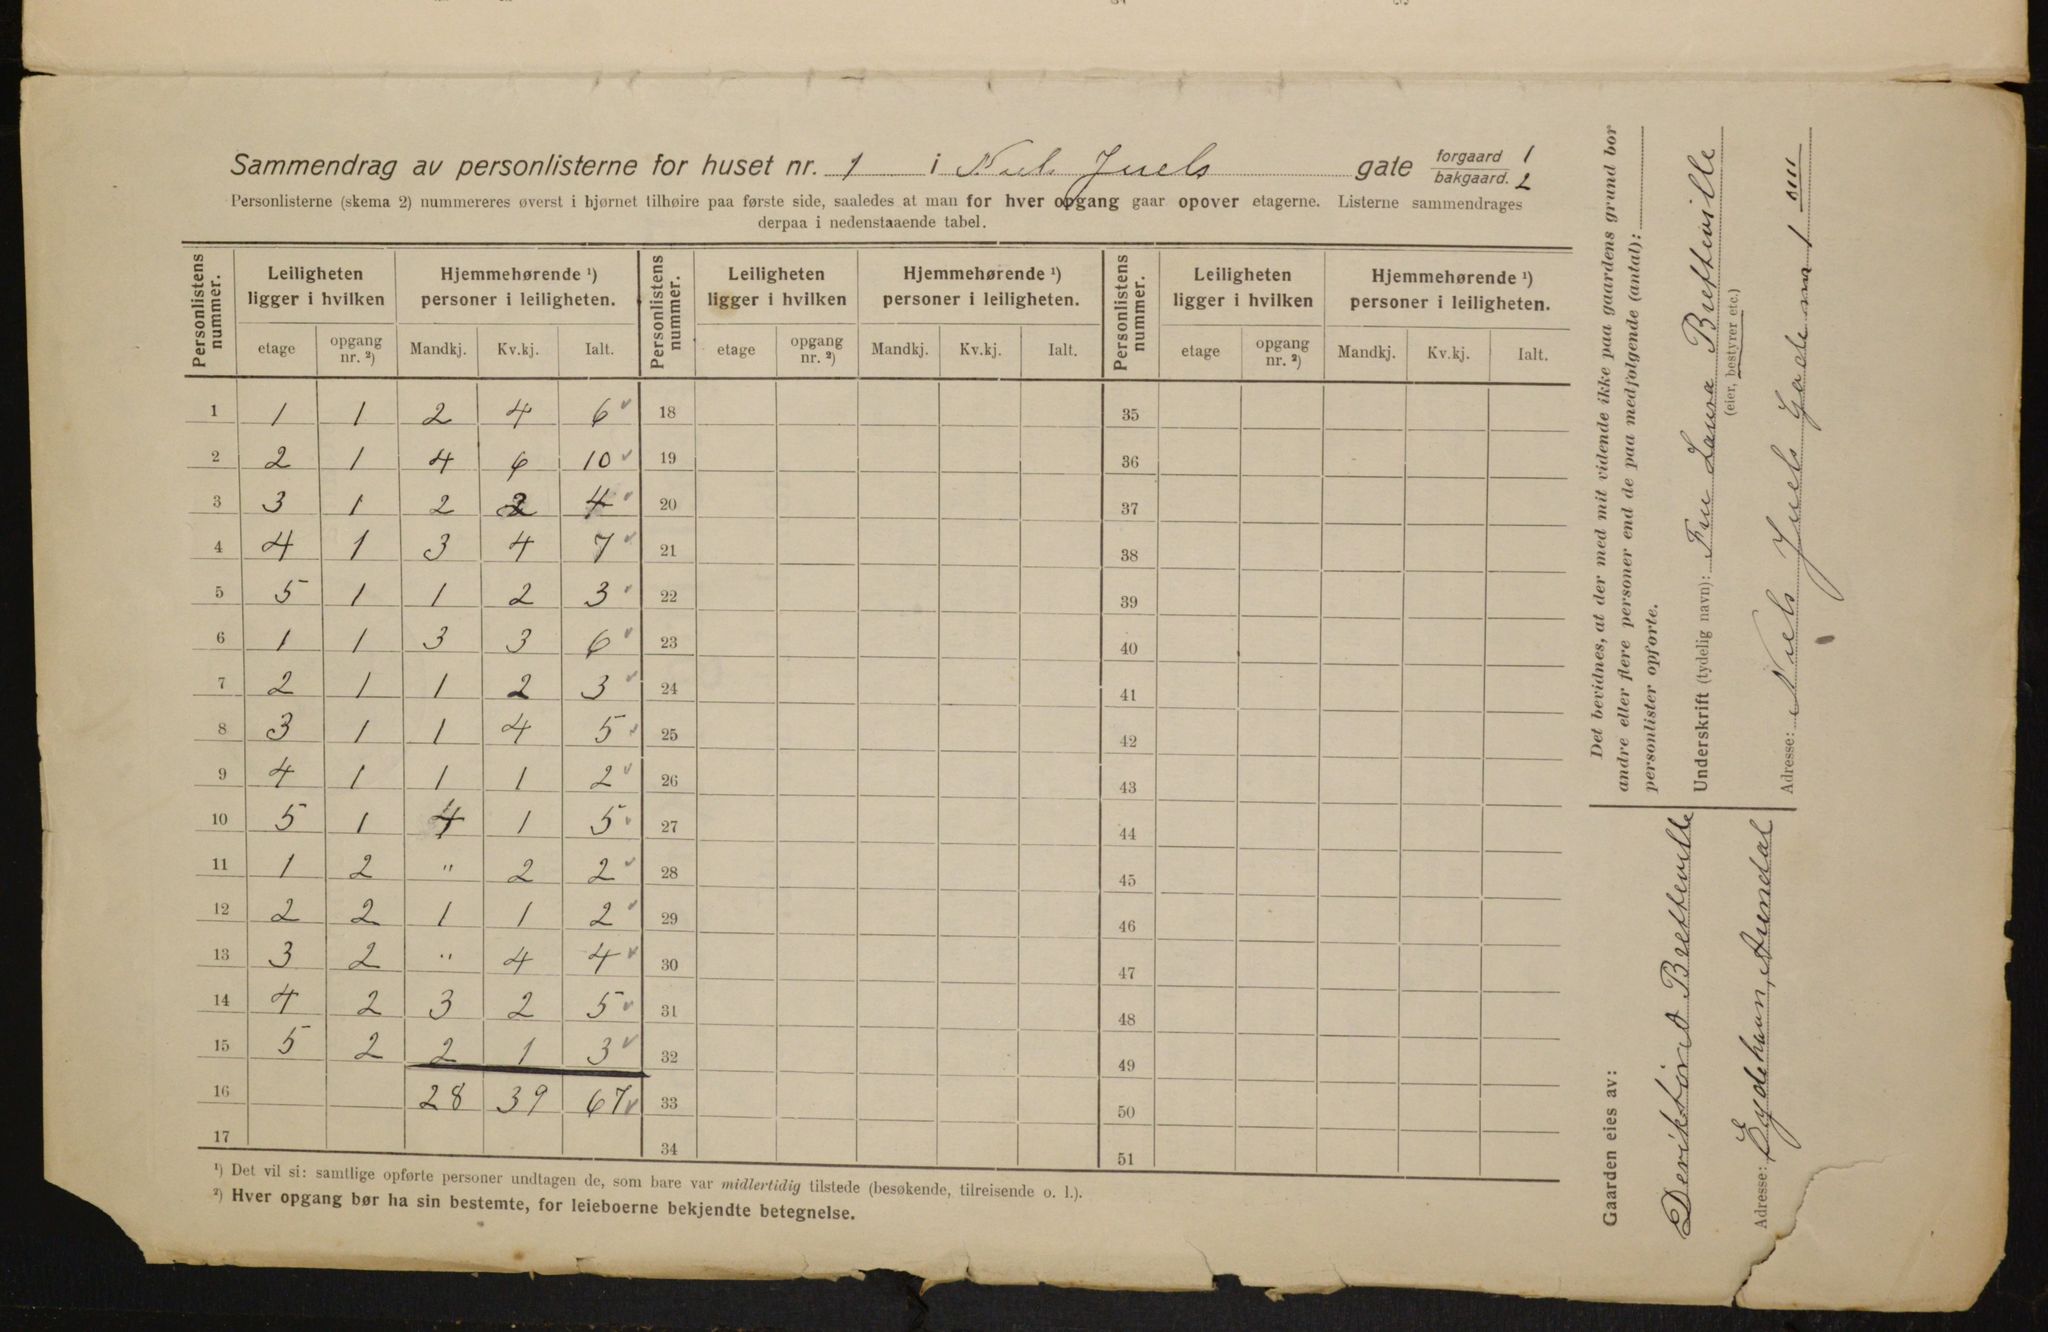 Sammendrag av personlisterne for huset nr. 1 i Niels Juels gate forgaard 1 bakgaard. 2
Personlisterne (skema 2) nummereres øverst i hjørnet tilhøire paa første side, saaledes at man for hver opgang gaar opover etagerne. Listerne sammendrages
derpaa i nedenstaaende tabel.
Personlistens nummer. Leiligheten ligger i hvilken Hjemmehørende ¹) personer i leiligheten. Personlistens nummer. Leiligheten ligger i hvilken Hjemmehørende ¹) personer i leiligheten. Personlistens nummer. Leiligheten ligger i hvilken Hjemmehørende ¹) personer i leiligheten.
etage opgang nr. ²) Mandkj. Kv.kj. Ialt. etage opgang nr. ²) Mandkj. Kv.kj. Ialt. etage opgang nr. ²) Mandkj. Kv.kj. Ialt.
1 1 1 2 4 6 18 35
2 2 1 4 6 10 19 36
3 3 1 2 2 4 20 37
4 4 1 3 4 7 21 38
5 5 1 1 2 3 22 39
6 1 1 3 3 6 23 40
7 2 1 1 2 3 24 41
8 3 1 1 4 5 25 42
9 4 1 1 1 2 26 43
10 5 1 4 1 5 27 44
11 1 2 " 2 2 28 45
12 2 2 1 1 2 29 46
13 3 2 " 4 4 30 47
14 4 2 3 2 5 31 48
15 5 2 2 1 3 32 49
16 28 39 67 33 50
17 34 51
¹) Det vil si: samtlige opførte personer undtagen de, som bare var midlertidig tilstede (besøkende, tilreisende o. l.).
²) Hver opgang bør ha sin bestemte, for leieboerne bekjendte betegnelse.
Det bevidnes, at der med mit vidende ikke paa gaardens grund bor
andre eller flere personer end de paa medfølgende (antal):
personlister opførte.
Underskrift (tydelig navn): Fru Laura Bretteville
(eier, bestyrer etc.)
Adresse: Niels Juels Gade 1
Gaarden eies av:
Bretteville
Adresse: Eydehavn, Arendal